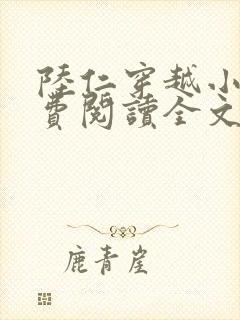 陸仁穿越小
費閱讀全文
鹿青崖